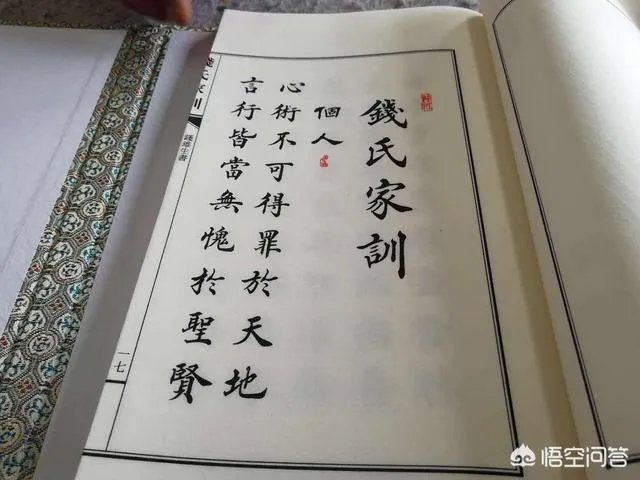 錢氏家訓
個人
心術不可得罪於天地
言行皆當無愧於聖賢
錢氏家訓
一七
悟空问答